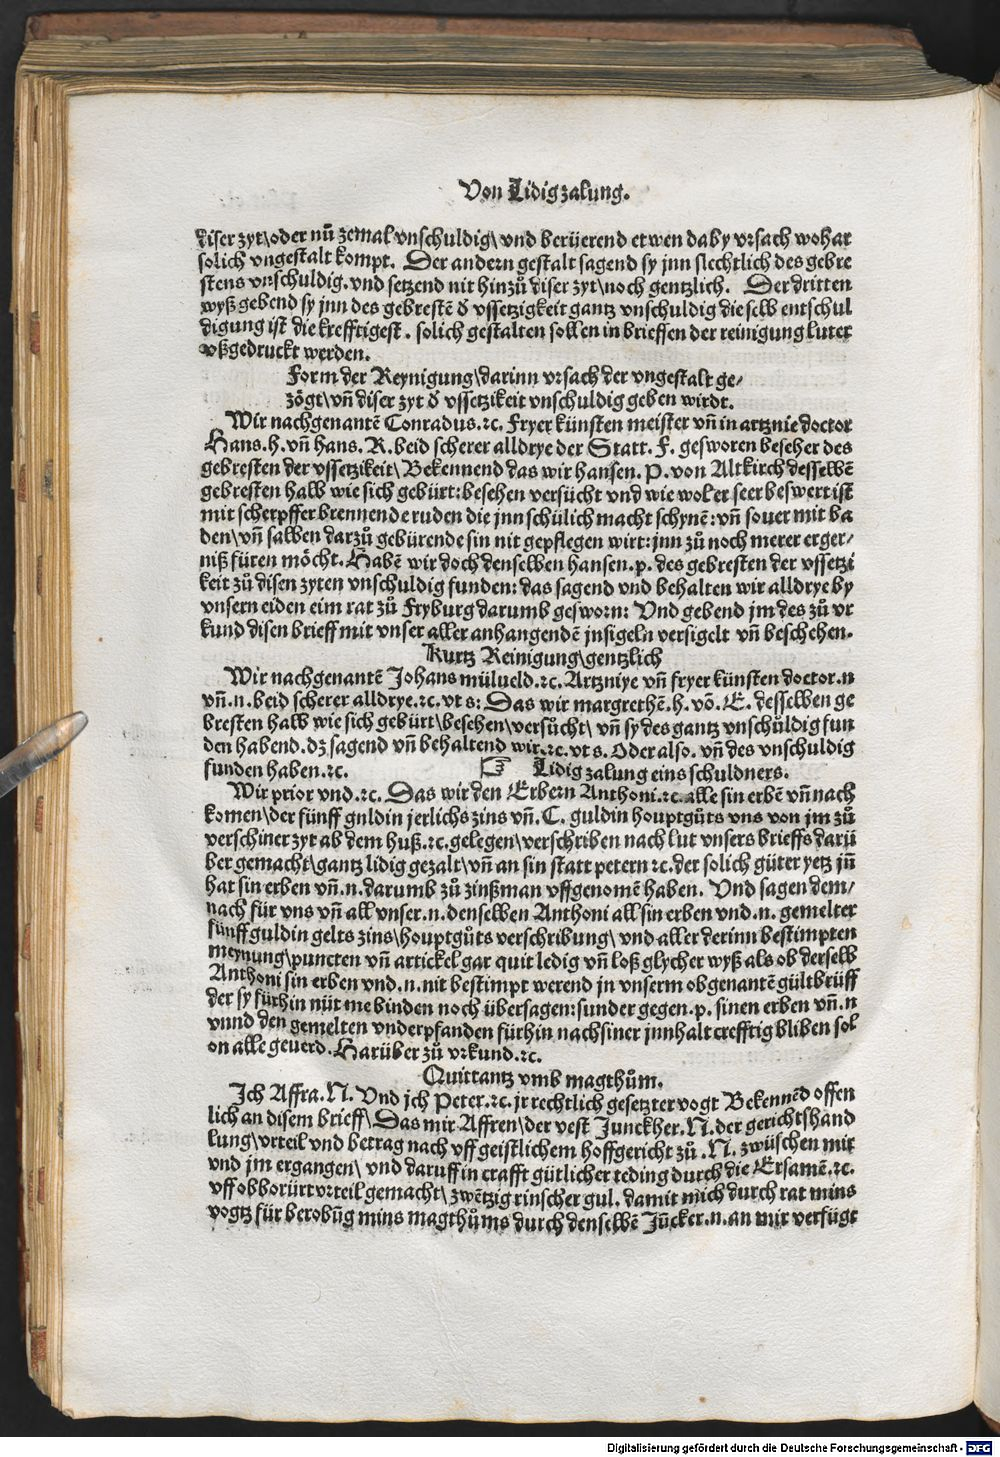 Von Lidigzalung.
diser zyt\oder nū zemal vnschuldig\ vnd berüerend etwen daby vrsach wohar
solich vngestalt kompt. Der andern gestalt sagend sy jnn slechtlich des gebre
stens vnschuldig. vnd setzend nit hinzů diser zyt\noch gentzlich. Der dritten
wyß gebend sy jnn des gebrestē d̄ vssetzigkeit gantz vnschuldig die selb entschul
digung ist die krefftigest. solich gestalten sollen in brieffen der reinigung luter
vßgedruckt werden.
Form der Reynigung\darinn vrsach der vngestalt ge⸗
zögt\vn̄ diser zyt d̄ vssetzikeit vnschuldig geben wirdt.
Wir nachgenantē Conradus.ꝛc. Fryer künsten meister vn̄ in artznie doctor
Hans.h.vn̄ hans.R.beid scherer alldrye der Statt.F.gesworen beseher des
gebresten der vssetzikeit\ Bekennend das wir hansen.P.von Altkirch desselbē
gebresten halb wie sich gebürt:besehen versücht vnd wie wol er seer beswert ist
mit scherpffer brennende ruden die jnn schülich macht schynē:vn̄ souer mit ba
den\vn̄ salben darzů gebürende sin nit gepflegen wirt:jnn zů noch merer erger⸗
niß füren möcht.Habē wir doch denselben hansen.p.des gebresten der vssetzi
keit zů disen zyten vnschuldig funden:das sagend vnd behalten wir alldrye by
vnsern eiden eim rat zů Fryburg darumb gesworn: Vnd gebend jm des zů vr
kund disen brieff mit vnser aller anhangendē jnsigeln versigelt vn̄ beschehen.
Kurtz Reinigung\gentzlich
Wir nachgenantē Johans mülueld.ꝛc. Artzniye vn̄ fryer künsten doctor.n
vn̄.n.beid scherer alldrye.ꝛc.vt s: Das wir margrethē.h.vō.E.desselben ge
bresten halb wie sich gebürt\besehen\versůcht\ vn̄ sy des gantz vnschůldig fun
den habend.dz sagend vn̄ behaltend wir.ꝛc.vt s. Oder also.vn̄ des vnschuldig
funden haben.ꝛc. ☞ Lidig zalung eins schuldners.
Wir prior vnd.ꝛc. Das wir den Erbern Anthoni.ꝛc.alle sin erbē vn̄ nach
komen\der fünff guldin jerlichs zins vn̄.C. guldin houptgůts vns von jm zů
verschiner zyt ab dem huß.ꝛc.gelegen\verschriben nach lut vnsers brieffs darü
ber gemacht\gantz lidig gezalt\vn̄ an sin statt petern ꝛc.der solich güter yetz jn̄
hat sin erben vn̄.n.darumb zů zinßman vffgenomē haben. Vnd sagen dem⸗
nach für vns vn̄ all vnser.n.denselben Anthoni all sin erben vnd.n.gemelter
fünff guldin gelts zins\houptgůts verschribung\ vnd aller derinn bestimpten
meynung\puncten vn̄ artickel gar quit ledig vn̄ loß glycher wyß als ob derselb
Anthoni sin erben vnd.n.nit bestimpt werend jn vnserm obgenantē gültbrüff
der sy fürhin nüt me binden noch übersagen:sunder gegen.p.sinen erben vn̄.n
vnnd den gemelten vnderpfanden fürhin nach siner jnnhalt crefftig bliben sol
on alle geuerd.Harüber zů vrkund.ꝛc.
Quittantz vmb magthům.
Ich Affra.N. Vnd jch Peter.ꝛc.jr rechtlich gesetzter vogt Bekennēd offen
lich an disem brieff\ Das mir Affren\der vest Junckher.N.der gerichtshand
lung\vrteil vnd betrag nach vff geistlichem hoffgericht zů.N.zwüschen mir
vnd jm ergangen\ vnd daruff in crafft gütlicher teding durch die Ersamē.ꝛc.
vff obborürt vrteil gemacht\ zwētzig rinscher gul.damit mich durch rat mins
vogtz für berobūg mins magthůms durch denselbē Jūcker.n.an mir verfügt
Digitalisierung gefördert durch die Deutsche Forschungsgemeinschaft - DFG